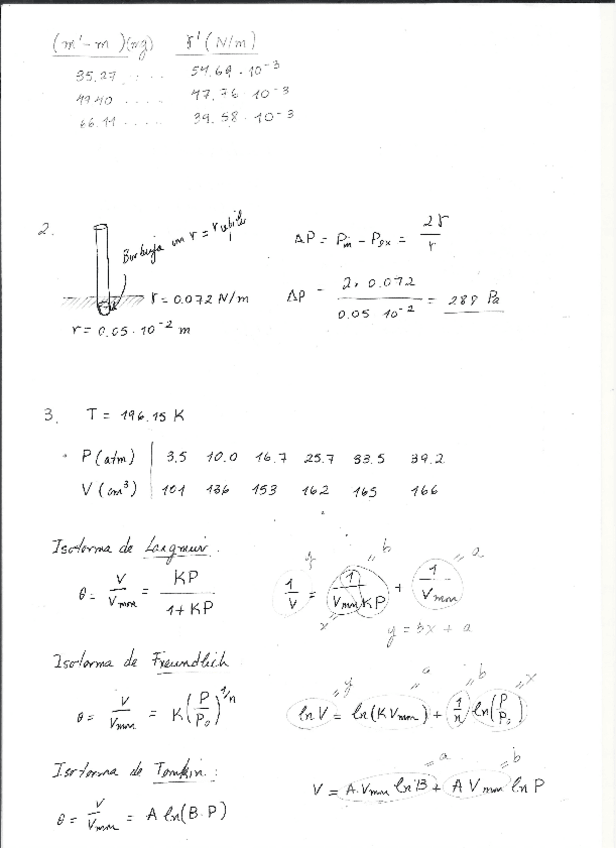 (m'-m)(mg) γ'(N/m)
35.27 ..... 54.69 · 10⁻³
49.40 ..... 47.76 · 10⁻³
66.11 ..... 39.58 · 10⁻³
2. Burbuja con r = r ΔP = Pin - Pex = 2γ/r
γ = 0.072 N/m ΔP = 2 · 0.072 / 0.05 10⁻² = 288 Pa
r = 0.05 · 10⁻² m
3. T = 196.15 K
P (atm) | 3.5 10.0 16.7 25.7 33.5 39.2
V (cm³) | 101 136 153 162 165 166
Isoterma de Langmuir. y = b = a
θ = V/Vmon = KP/1+KP 1/V = 1/Vmon KP + 1/Vmon
x y = bx + a
Isoterma de Freundlich = y = a = b = x
θ = V/Vmon = K(P/P₀)^1/n ln V = ln(K Vmon) + 1/n ln(P/P₀)
Isoterma de Temkin: = a = b
θ = V/Vmon = A ln(B·P) V = A·Vmon ln B + A Vmon ln P